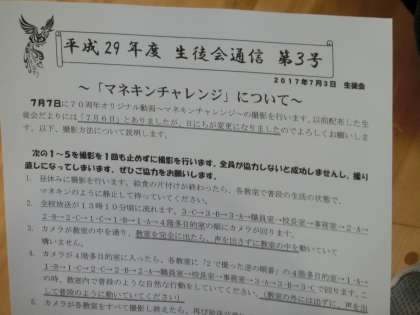 平成29年度 生徒会通信 第3号
2017年7月3日 生徒会
～「マネキンチャレンジ」について～
7月7日に70周年オリジナル動画～マネキンチャレンジ～の撮影を行います。以前配布した生
徒会だよりには「7月6日」とありましたが、日にちが変更になりましたのでよろしくお願いしま
す。以下、撮影方法について説明します。
次の1～5を撮影を1回も止めずに撮影を行います。全員が協力しないと成功しませんし、撮り
直しになってしまいます。ぜひご協力をお願いします。
1. 昼休みに撮影を行います。給食の片付けが終わったら、各教室で普段の生活の状態で、
マネキンのように静止して待っていてください。
2. 全校放送が13時10分頃に流れます。3-C→3-B→3-A→職員室→校長室→事務室→2-A→
2-B→2-C→1-C→1-B→1-A→4階多目的室の順にカメラが回ります。
3. カメラが教室の中を通り、教室を完全に出たら、声を出さずに教室の中を動いていて
構いません。
4. カメラが4階多目的室に入ったら、各教室に「2で撮った逆の順番」の4階多目的室→1-A→
1-B→1-C→2-C→2-B→2-A→事務室→校長室→職員室→3-A→3-B→3-C
の時、教室内で普段のような自然な行動をしてください。(教室の外には出ずに、声を出
して普段のように動いていてください)
5. カメラが各教室をすべて撮影し終えたら、再び放送